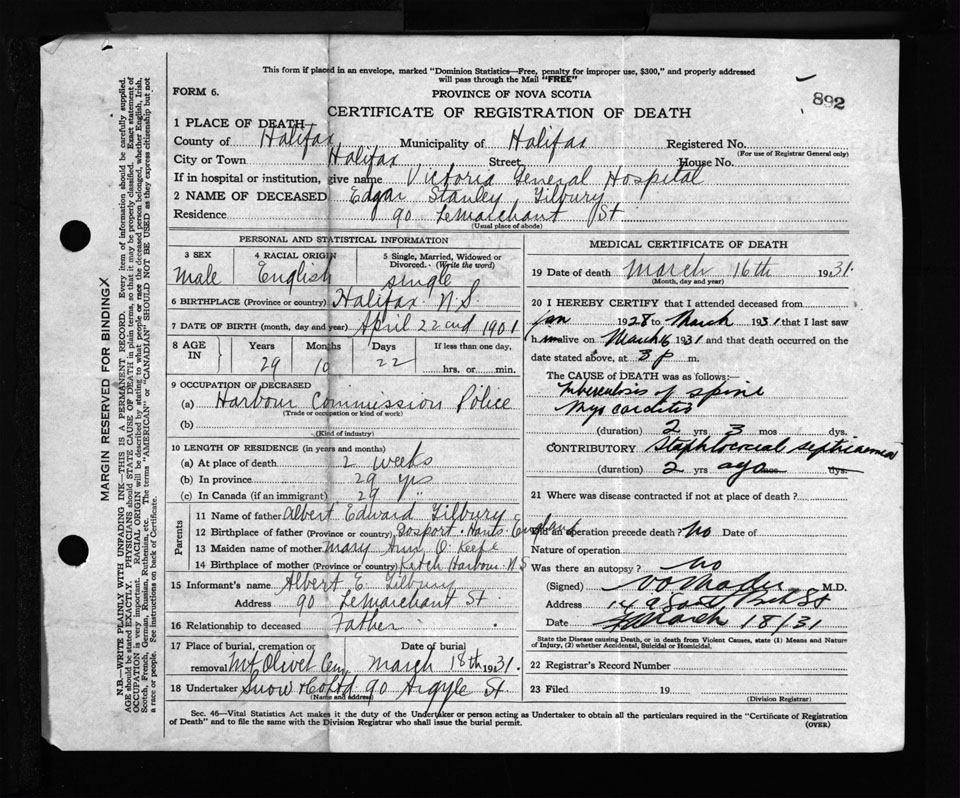 This form if placed in an envelope, marked "Dominion Statistics—Free, penalty for improper use, $300," and properly addressed
will pass through the Mail "FREE"
892
FORM 6.
PROVINCE OF NOVA SCOTIA
CERTIFICATE OF REGISTRATION OF DEATH
1 PLACE OF DEATH
County of Halifax Municipality of Halifax Registered No.
(For use of Registrar General only)
City or Town Halifax Street, House No.
If in hospital or institution, give name Victoria General Hospital
2 NAME OF DECEASED Edgar Stanley Tilbury
Residence 90 LeMarchant St
(Usual place of abode)
PERSONAL AND STATISTICAL INFORMATION
3 SEX 4 RACIAL ORIGIN 5 Single, Married, Widowed or
Divorced. (Write the word)
Male English single
6 BIRTHPLACE (Province or country) Halifax N.S.
7 DATE OF BIRTH (month, day and year) April 22nd 1901
8 AGE IN Years Months Days If less than one day,
29 10 22 hrs. or min.
9 OCCUPATION OF DECEASED
(a) Harbour Commission Police
(Trade or occupation or kind of work)
(b)
(Kind of industry)
10 LENGTH OF RESIDENCE (in years and months)
(a) At place of death 2 weeks
(b) In province 29 yrs
(c) In Canada (if an immigrant) 29 "
Parents
11 Name of father Albert Edward Tilbury
12 Birthplace of father (Province or country) Gosport Hants England
13 Maiden name of mother Mary Ann O'Keefe
14 Birthplace of mother (Province or country) Ketch Harbour N.S
15 Informant's name Albert E Tilbury
Address 90 LeMarchant St
16 Relationship to deceased Father
17 Place of burial, cremation or Date of burial
removal Mt Olivet Cem March 18th 1931.
18 Undertaker Snow & Co Ltd 90 Argyle St.
(Name and address)
MEDICAL CERTIFICATE OF DEATH
19 Date of death March 16th 1931.
(Month, day and year)
20 I HEREBY CERTIFY that I attended deceased from
Jan 1928 to March 1931 that I last saw
him alive on March 16 1931 and that death occurred on the
date stated above, at 3 p m.
The CAUSE of DEATH was as follows:
Tuberculosis of spine
Myocarditis
(duration) 2 yrs 3 mos dys.
CONTRIBUTORY Staphlococcal septicaemia
(duration) 2 yrs ago mos dys.
21 Where was disease contracted if not at place of death?
Did an operation precede death? No Date of
Nature of operation
Was there an autopsy? No
(Signed) M.D.
Address
Date March 18/31
State the Disease causing Death, or in death from Violent Causes, state (1) Means and Nature
of Injury, (2) whether Accidental, Suicidal or Homicidal.
22 Registrar's Record Number
23 Filed 19
(Division Registrar)
Sec. 46—Vital Statistics Act makes it the duty of the Undertaker or person acting as Undertaker to obtain all the particulars required in the "Certificate of Registration
of Death" and to file the same with the Division Registrar who shall issue the burial permit.
(OVER)
MARGIN RESERVED FOR BINDING
N.B.—WRITE PLAINLY WITH UNFADING INK—THIS IS A PERMANENT RECORD. Every item of information should be carefully supplied.
AGE should be stated EXACTLY. PHYSICIANS should STATE CAUSE OF DEATH in plain terms, so that it may be properly classified. Exact statement of
OCCUPATION is very important. RACIAL ORIGIN will be described by stating to what people or race the deceased person belonged, whether English, Irish,
Scotch, French, German, Russian, Ruthenian, etc. The terms "AMERICAN" or "CANADIAN" SHOULD NOT BE USED as they express citizenship but not
a race or people. See instructions on back of Certificate.